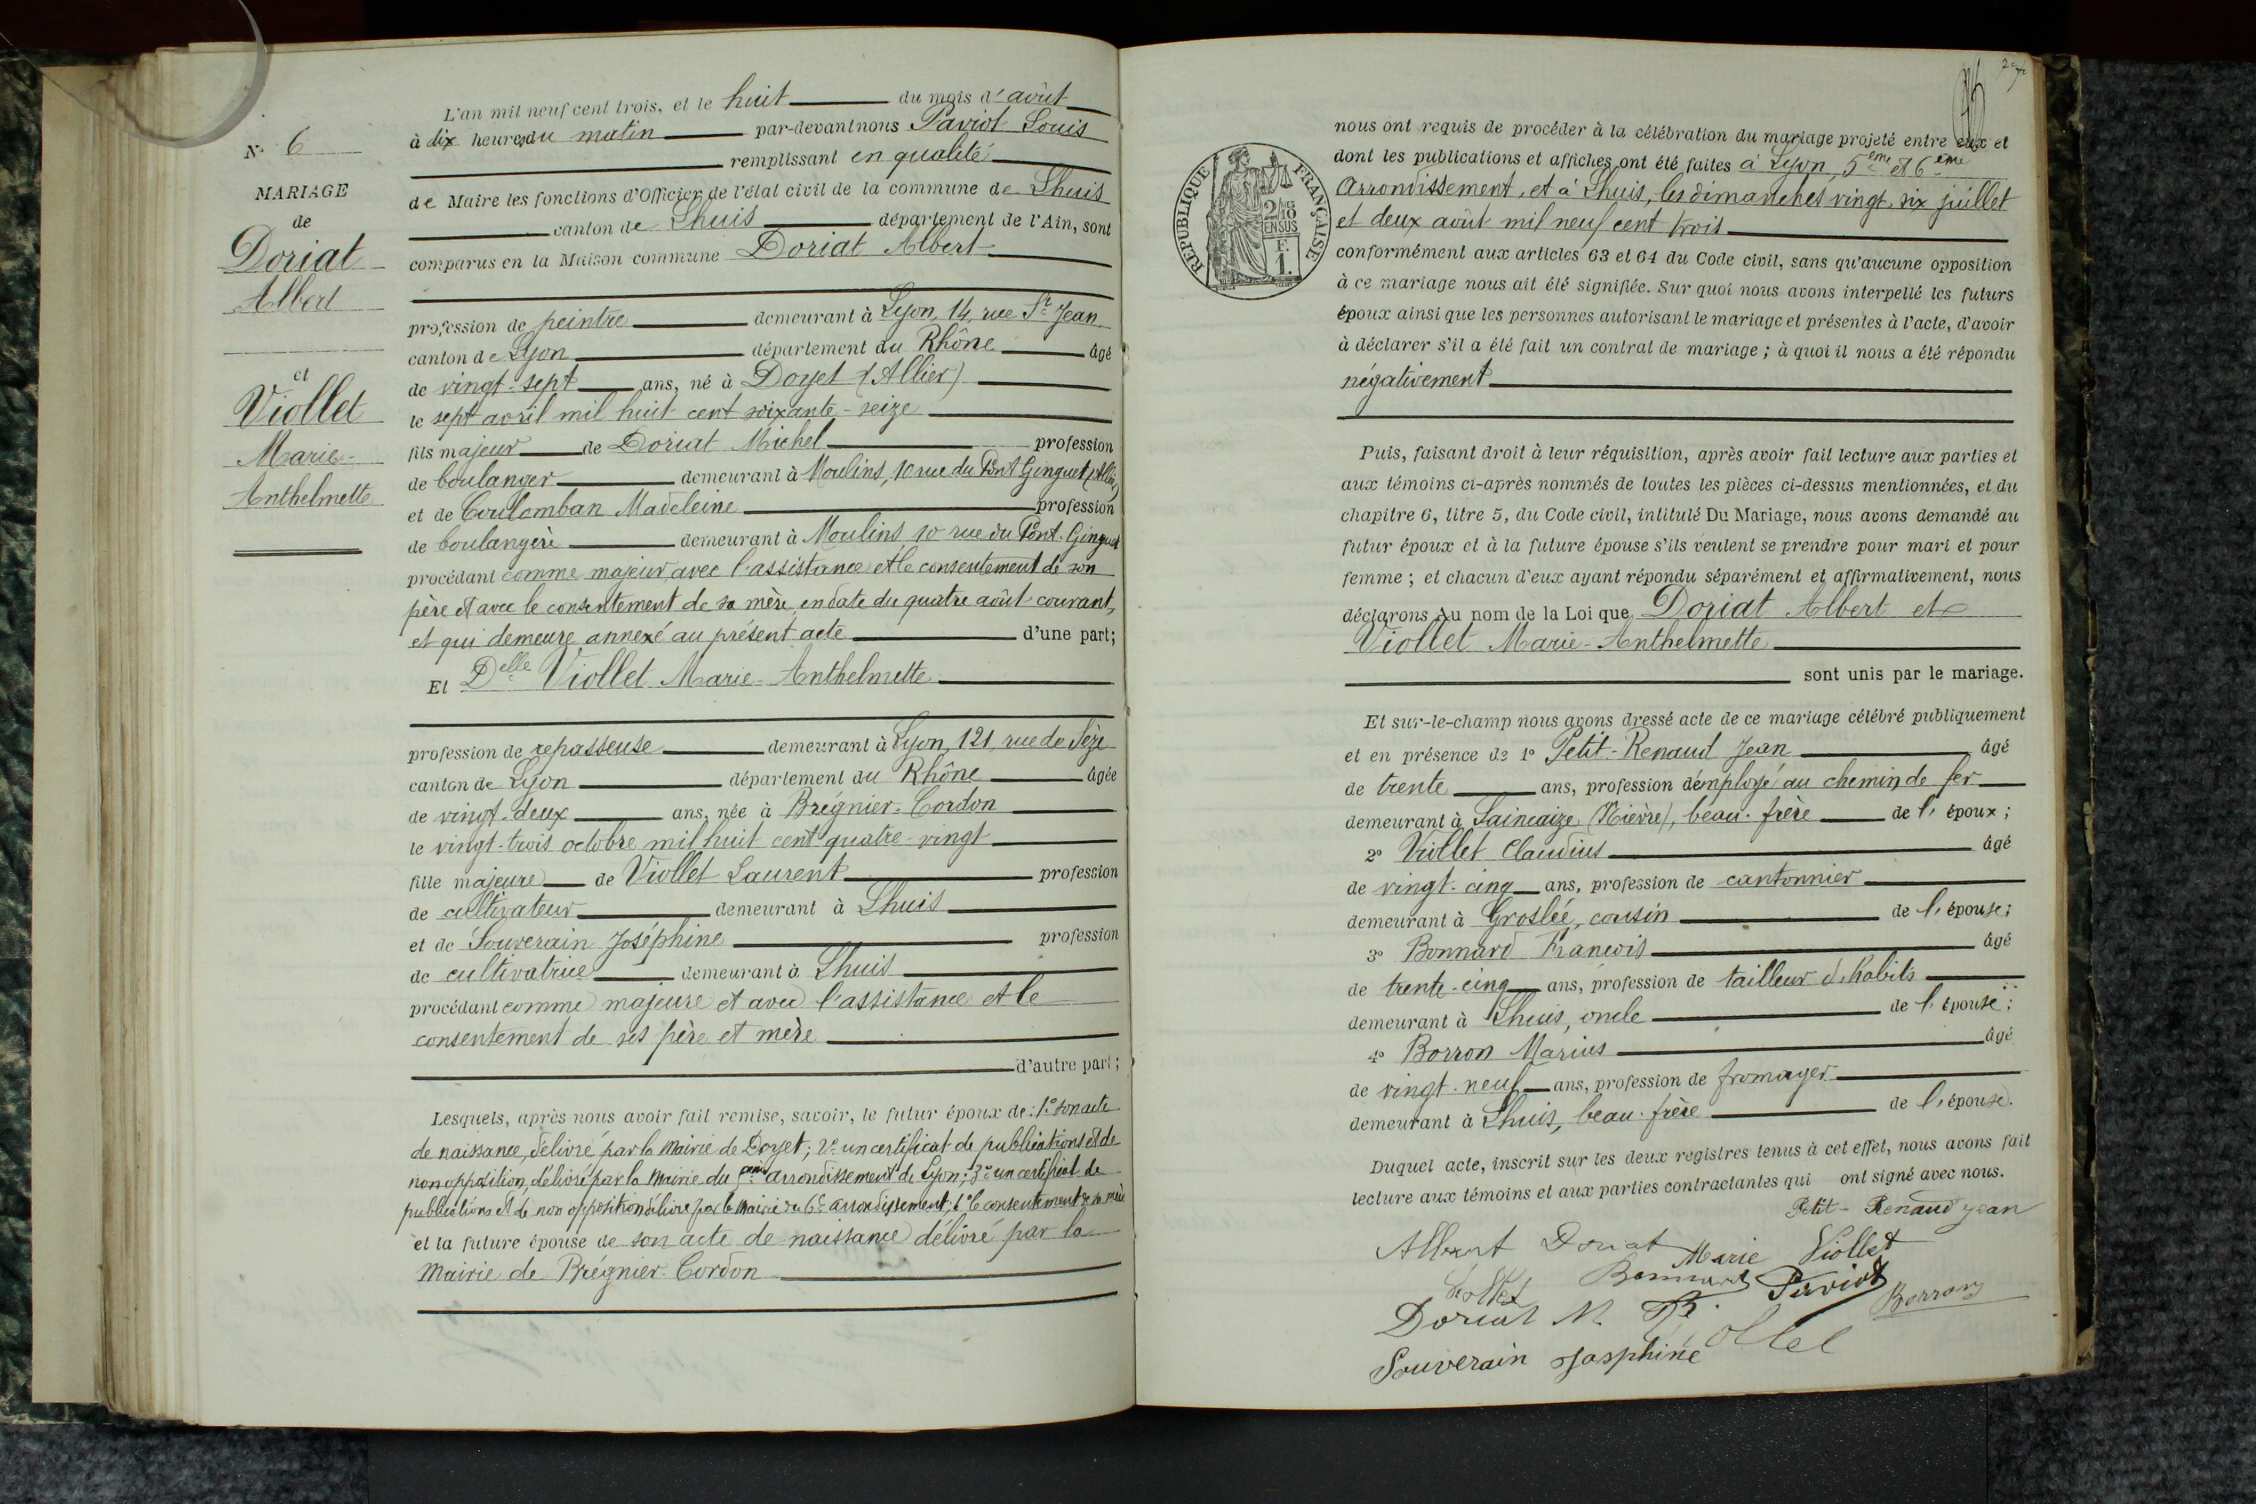 N° 6
MARIAGE
de
Doriat
Albert
et
Viollet
Marie-
Anthelmette
L'an mil neuf cent trois, et le huit du mois d'août
à dix heures du matin par-devant nous Paviot Louis
remplissant en qualité
de Maire les fonctions d'Officier de l'état civil de la commune de Lhuis
canton de Lhuis département de l'Ain, sont
comparus en la Maison commune Doriat Albert
profession de peintre demeurant à Lyon, 14, rue St Jean
canton de Lyon département du Rhône âgé
de vingt-sept ans, né à Doyet (Allier)
le sept avril mil huit cent soixante-seize
fils majeur de Doriat Michel profession
de boulanger demeurant à Moulins, 10 rue du Pont Ginguet (Allier)
et de Coulomban Madeleine profession
de boulangère demeurant à Moulins 10 rue du Pont-Ginguet
procédant comme majeur, avec l'assistance et le consentement de son
père et avec le consentement de sa mère, en date du quatre août courant,
et qui demeure annexé au présent acte d'une part;
Et Delle Viollet Marie-Anthelmette
profession de repasseuse demeurant à Lyon, 121, rue de Sèze
canton de Lyon département du Rhône âgée
de vingt-deux ans, née à Brégnier-Cordon
le vingt-trois octobre mil huit cent quatre-vingt
fille majeure de Viollet Laurent profession
de cultivateur demeurant à Lhuis
et de Souverain Joséphine profession
de cultivatrice demeurant à Lhuis
procédant comme majeure et avec l'assistance et le
consentement de ses père et mère
d'autre part;
Lesquels, après nous avoir fait remise, savoir, le futur époux de: 1° son acte
de naissance, délivré par la Mairie de Doyet; 2° un certificat de publications et de
non opposition, délivré par la Mairie du 5ème arrondissement de Lyon; 3° un certificat de
publications et de non opposition délivré par la Mairie du 6e arrondissement; 4° le consentement de sa mère
et la future épouse de son acte de naissance délivré par la
Mairie de Brégnier-Cordon
RÉPUBLIQUE FRANÇAISE
2/10
EN SUS
F.
1.
nous ont requis de procéder à la célébration du mariage projeté entre eux et
dont les publications et affiches ont été faites à Lyon, 5ème et 6ème
Arrondissement, et à Lhuis, les dimanches vingt-six juillet
et deux août mil neuf cent trois
conformément aux articles 63 et 64 du Code civil, sans qu'aucune opposition
à ce mariage nous ait été signifiée. Sur quoi nous avons interpellé les futurs
époux ainsi que les personnes autorisant le mariage et présentes à l'acte, d'avoir
à déclarer s'il a été fait un contrat de mariage; à quoi il nous a été répondu
négativement
Puis, faisant droit à leur réquisition, après avoir fait lecture aux parties et
aux témoins ci-après nommés de toutes les pièces ci-dessus mentionnées, et du
chapitre 6, titre 5, du Code civil, intitulé Du Mariage, nous avons demandé au
futur époux et à la future épouse s'ils veulent se prendre pour mari et pour
femme; et chacun d'eux ayant répondu séparément et affirmativement, nous
déclarons Au nom de la Loi que Doriat Albert et
Viollet Marie-Anthelmette
sont unis par le mariage.
Et sur-le-champ nous avons dressé acte de ce mariage célébré publiquement
et en présence de 1° Petit-Renaud Jean âgé
de trente ans, profession d'employé au chemin de fer
demeurant à Saincaize (Nièvre), beau-frère de l'époux;
2° Viollet Claudius âgé
de vingt-cinq ans, profession de cantonnier
demeurant à Groslée, cousin de l'épouse;
3° Bonnard François âgé
de trente-cinq ans, profession de tailleur d'habits
demeurant à Lhuis, oncle de l'épouse;
4° Borron Marius âgé
de vingt-neuf ans, profession de fromager
demeurant à Lhuis, beau-frère de l'épouse.
Duquel acte, inscrit sur les deux registres tenus à cet effet, nous avons fait
lecture aux témoins et aux parties contractantes qui ont signé avec nous.
Petit-Renaud Jean
Albert Doriat Marie Viollet
Viollet Bonnard Paviot
Doriat M. Borron
Souverain Josphine